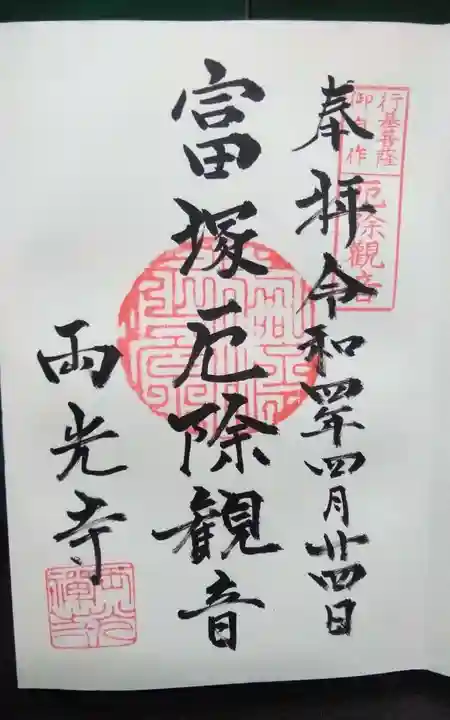 行基菩薩
御自作
厄除觀音
奉拝 令和四年四月廿四日
富塚厄除観音
両光寺